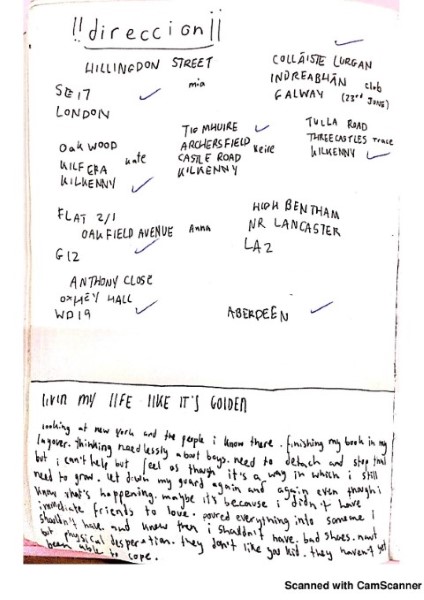 !!direccion!!
HILLINGDON STREET
mia
SE17
LONDON
COLLÁISTE LURGAN
INDREABHÁN club
GALWAY (23rd JUNE)
OAKWOOD
KILFERA kate
KILKENNY
TIG MHUIRE
ARCHERSFIELD
CASTLE ROAD
KILKENNY
TULLA ROAD
THREECASTLES
KILKENNY
FLAT 2/1
OAKFIELD AVENUE Anna
G12
HIGH BENTHAM
NR LANCASTER
LA2
ANTHONY CLOSE
OXHEY HALL
WD19
ABERDEEN
livin MY LIFE LIKE IT'S GOLDEN
looking at new york and the people i know there. finishing my book in my
layover. thinking needlessly about boys. need to detach and stop that
but i can't help but feel as though it's a way in which i still
need to grow. let down my guard again and again even though i
know what's happening. maybe it's because i didn't have
immediate friends to love. poured everything into someone i
shouldn't have and knew then i shouldn't have. bad shoes.
but physical desperation. they don't like you kid. they haven't yet
been able to cope.
Scanned with CamScanner